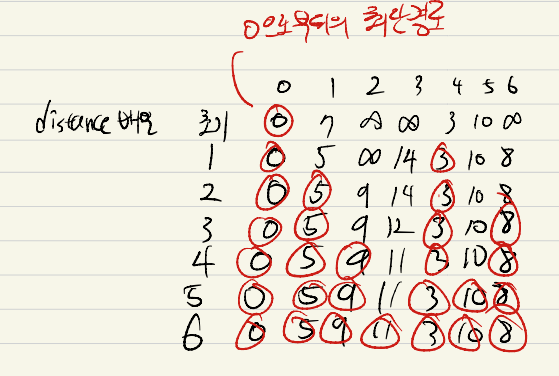 0으로부터의 최단경로
0 1 2 3 4 5 6
distance 배열 초기 0 7 ∞ ∞ 3 10 ∞
1 0 5 ∞ 14 3 10 8
2 0 5 9 14 3 10 8
3 0 5 9 12 3 10 8
4 0 5 9 11 3 10 8
5 0 5 9 11 3 10 8
6 0 5 9 11 3 10 8